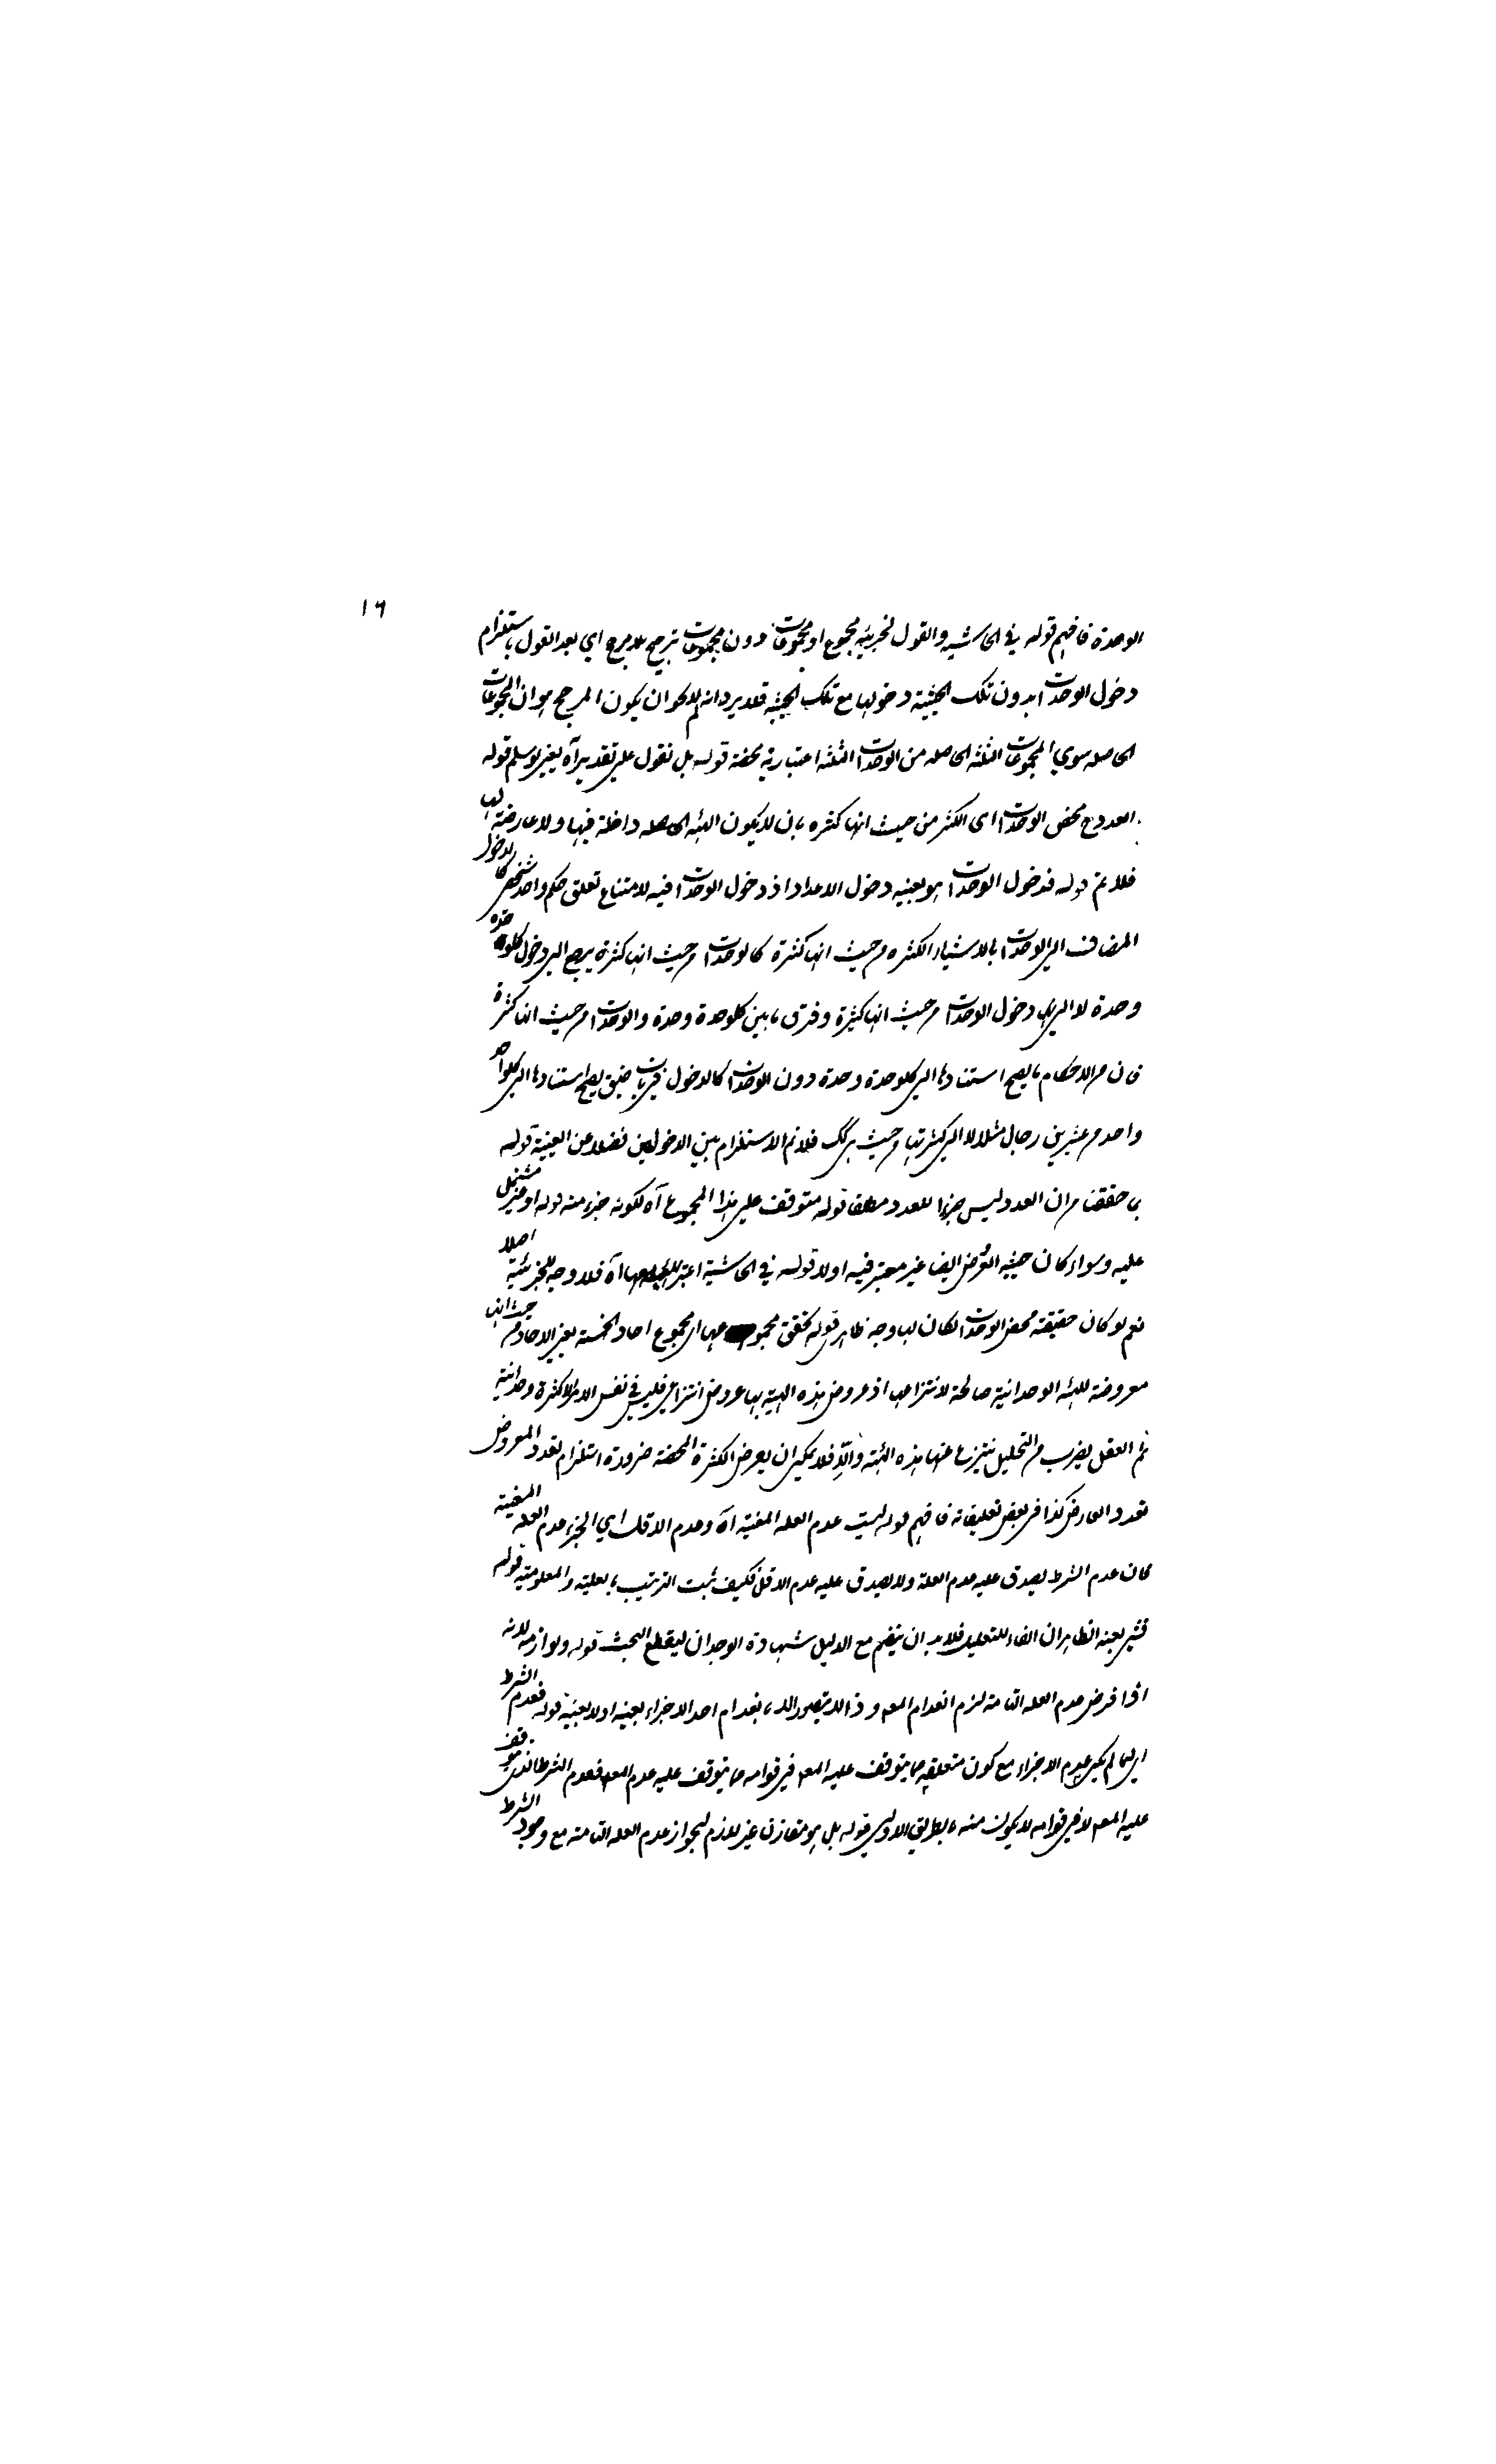 ١٦
الوحدة فافهم قوله في الحاشيه والقول لجزئيه مجموع او مجموعات دون مجموعات ترجيح بلا مرجح اي بعد القول باستلزام
دخول الوحدات بدون تلك الحيثية دخولها مع تلك الحيثيه فلا يرد انه لم لا يجوز ان يكون المرجح هو ان المجموعات
الحاصله سوي المجموعات الثلثه الحاصله من الوحدات الثلثه اعتباريه محضة قوله بل نقول علي تقدير آه يعني لو سلم قوله
العدد مع محض الوحدات اى الكثر من حيث انها كثره بان لا يكون الهيئه الحاصله داخلة فيها ولا عارضة لها
فلا تم قوله فدخول الوحدات هو بعينه دخول الاعداد اذ دخول الوحدات فيه لامتناع تعلق حكم واحد شخصي كالدخول
المضاف الي الوحدات بالاشياء الكثره من حيث انها كثرة كالوحدات من حيث انها كثرة يرجع الي دخول كلوحدة
وحدة لا الي دخول الوحدات من حيث انها كثيرة وفرق ما بين كلوحدة وحدة والوحدات من حيث انها كثرة
فان من الاحكام ما يصح استنادها الي كلوحدة وحدة دون الوحدات كالدخول في باب ضيق يصح استنادها الي كلواحد
واحد من عشرين رجال مثلا لا الي كثرتها من حيث هي كك فلا تم الاستلزام بين الدخولين فضلا عن العينية قوله
بما حققنا من ان العدد ليس جزءا للعدد مطلقا قوله متوقف علي هذا المجموع آه لكونه جزء منه قوله او غير مشتمل
عليه وسواء كان حيثيه العروض ايضا غير معتبر فيه اولا قوله في الحاشية اعتبر آه فلا وجه للجزئية اصلا
نعم لو كان حقيقته محض الوحدات لكان لها وجه ظاهر قوله تحقق مجموع اى مجموع احاد الخمسة يعني الاحاد من حيث انها
معروضة للهيئه الوحدانية صالحة لانتزاعها اذ عروض هذه الهيئة بها عروض انتزاعي فليس في نفس الامر الا كثرة وحدانية
ثم العقل بضرب من التحليل ينتزع عنها هذه الهيئة والا فلا يمكن ان يعرض الكثرة المحضة ضرورة استلزام تعدد المعروض
تعدد العارض كذا في بعض تعليقاته فافهم قوله ليست عدم العله المغنيه آه وعدم الاقل اي الجزء عدم العله المغنية
كان عدم الشرط يصدق عليه عدم العلة ولا يصدق عليه عدم الاقل فكيف ثبت الترتيب بالعليه والمعلوميته قوله
يعنيه الظاهر ان الفاء للتعليل فلا بد ان ينضم مع الدليل شهادة الوجدان ليقطع البحث قوله ولوازمه لانه
اذا فرض عدم العله التامة لزم انعدام المعه وذا لا يتصور الا بانعدام احد الاجزاء بعينه اولا بعينه قوله فعدم الشرط
اى لما لم يكن عدم الاجزاء مع كون متعلقه مما يتوقف عليه المعه في قوامه مما يتوقف عليه عدم المعه فعدم الشرط الذي يتوقف
عليه المعه لا في قوامه لا يكون منه بالطريق الاولي قوله بل هو مقارن غير لازم لجواز عدم العله التامة مع وجود الشرط